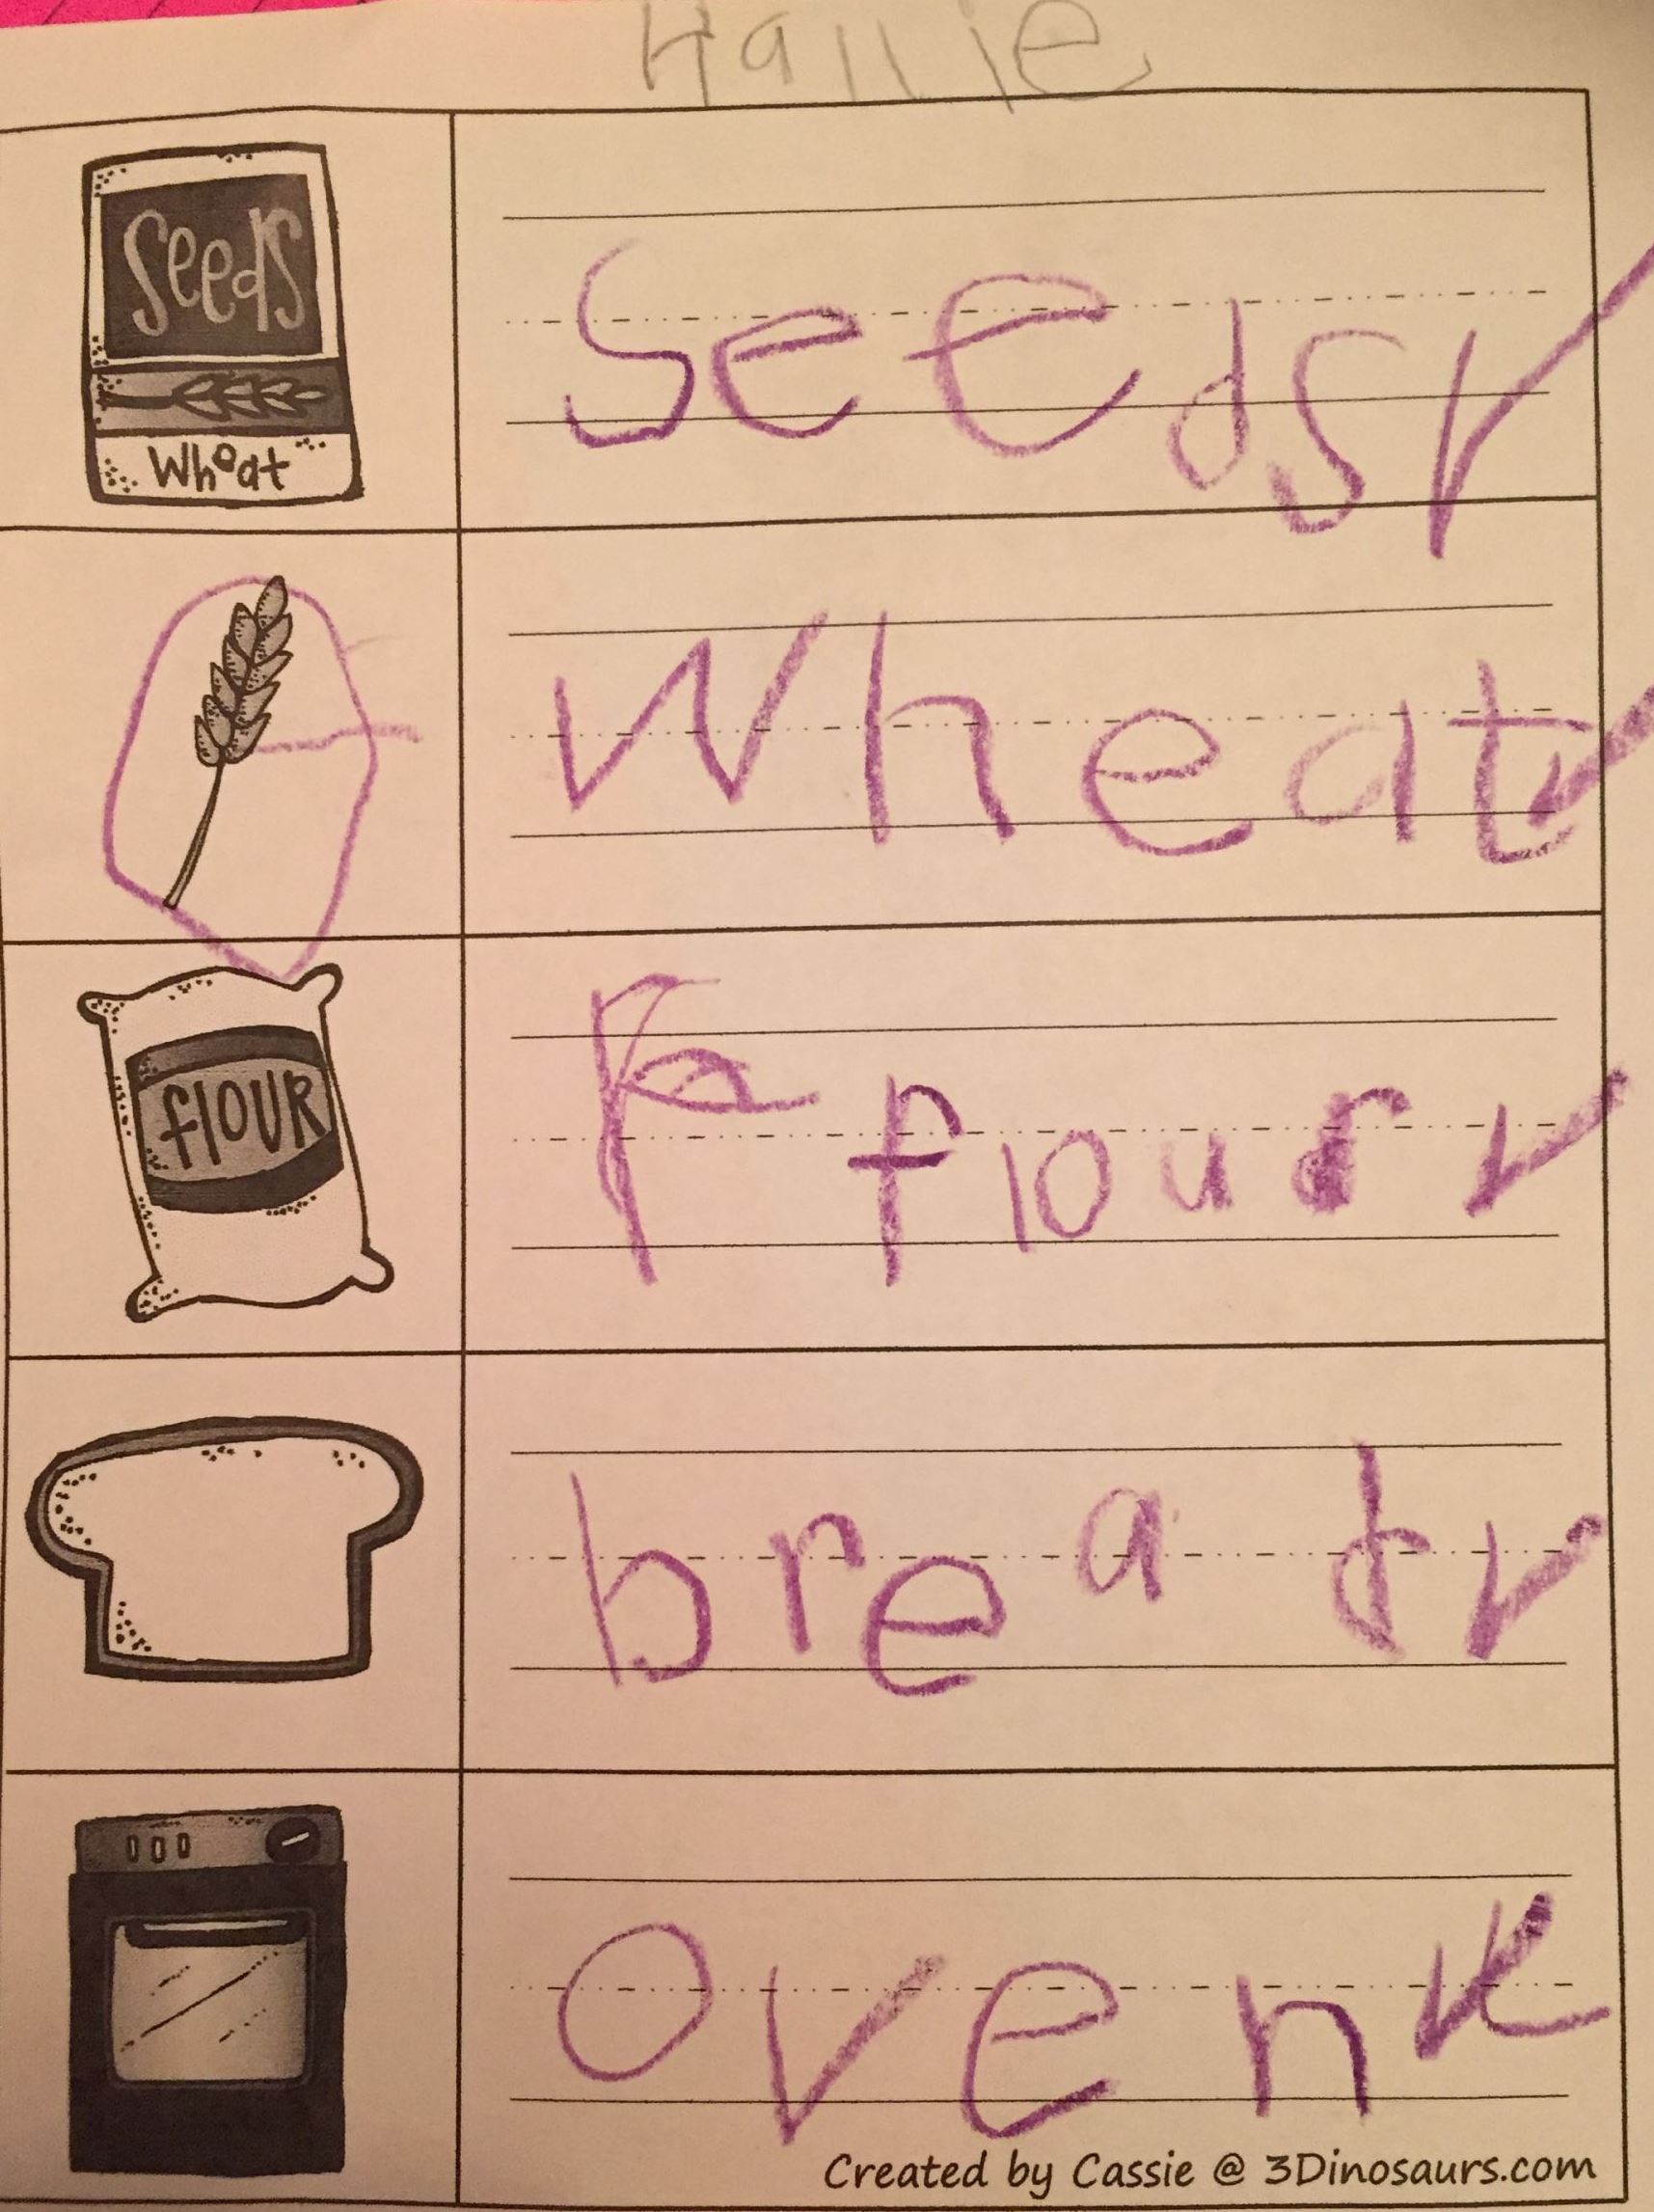 Hallie
Seeds
Wheat
Seeds
Wheat
flour
flour
bread
oven
Created by Cassie @ 3Dinosaurs.com